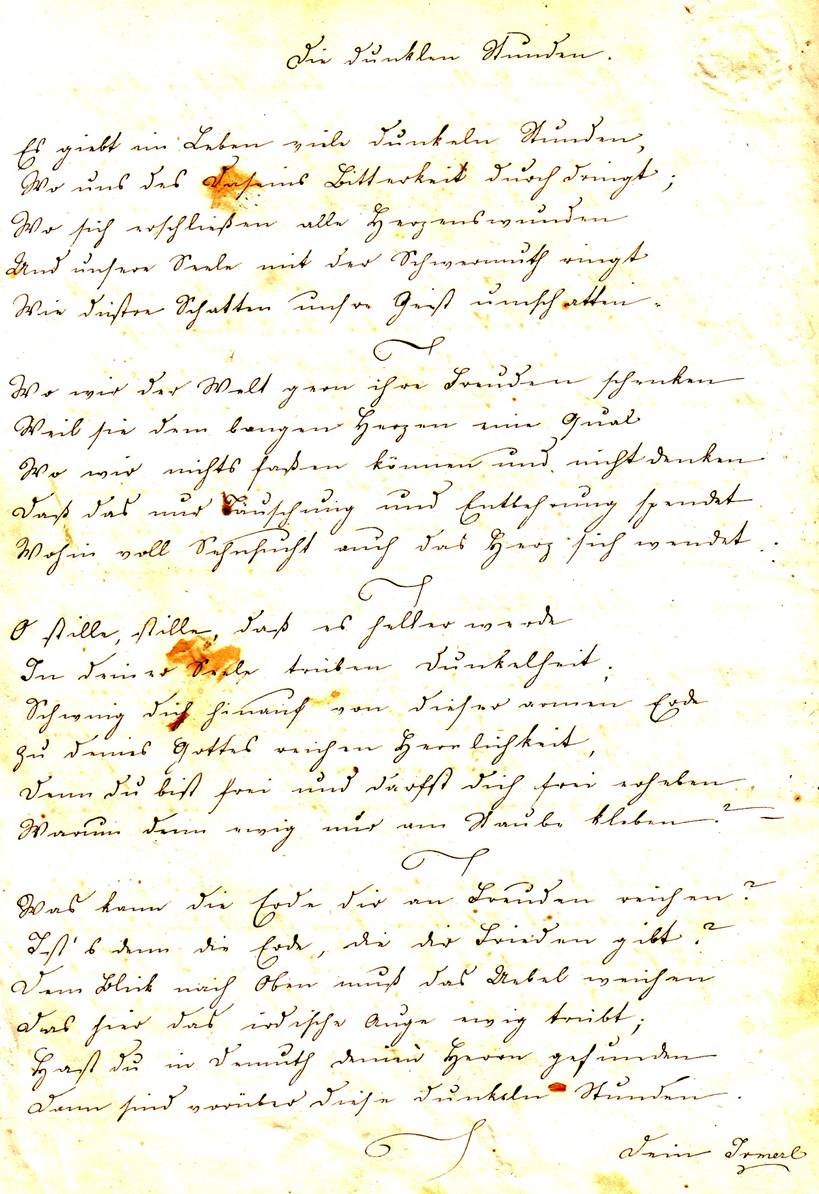 Die dunklen Stunden.
Es giebt im Leben viele dunkeln Stunden,
Wo uns des Daseins Bitterkeit durchdringt;
Wo sich erschließen alle Herzenswunden
Und unsere Seele mit der Schwermuth ringt
Wie düstre Schatten unsre Geist umschatten.
Wo wir der Welt gern ihre Freuden schenken
Weil sie dem bangen Herzen eine Qual
Wo wir nichts faßen können und nicht denken
Daß das nur Täuschung und Entbehrung spendet
Wohin voll Sehnsucht auch das Herz sich wendet.
O stille, stille, daß es heller werde
In deiner Seele trüben Dunkelheit;
Schwing dich hinauf von dieser armen Erde
Zu deines Gottes reichen Herrlichkeit,
Denn du bist frei und darfst dich frei erheben
Warum denn ewig nur am Staube kleben? –
Was kann die Erde dir an Freuden reichen?
Ist's denn die Erde, die dir Frieden gibt?
Dem Blick nach Oben muß das Uebel weichen
Das hier das irdische Auge ewig trübt;
Hast du in Demuth deinen Herrn gefunden
Dann sind vorüber diese dunkeln Stunden.
Dein